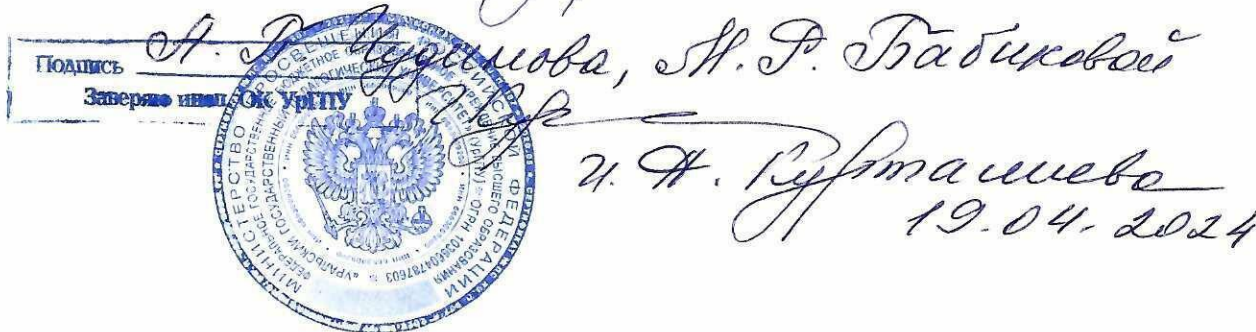 Подпись А. П. Чудинова, М. Р. Бабиковой
Заверяю инсп. ОК УрГПУ
И. А. Курталиева
19.04.2024
МИНИСТЕРСТВО ПРОСВЕЩЕНИЯ РОССИЙСКОЙ ФЕДЕРАЦИИ
ФЕДЕРАЛЬНОЕ ГОСУДАРСТВЕННОЕ БЮДЖЕТНОЕ ОБРАЗОВАТЕЛЬНОЕ УЧРЕЖДЕНИЕ ВЫСШЕГО ОБРАЗОВАНИЯ
«УРАЛЬСКИЙ ГОСУДАРСТВЕННЫЙ ПЕДАГОГИЧЕСКИЙ УНИВЕРСИТЕТ» (УрГПУ) * ОГРН 1036604787603 *